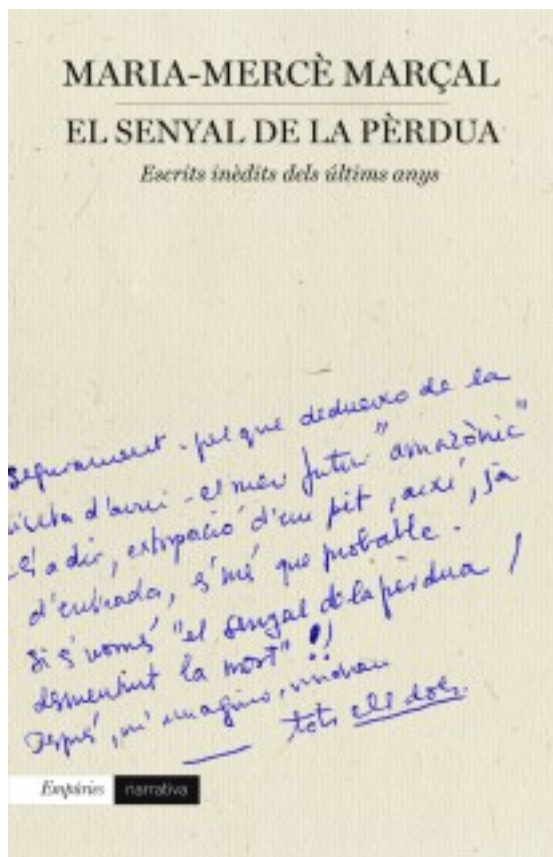 MARIA-MERCÈ MARÇAL
EL SENYAL DE LA PÈRDUA
Escrits inèdits dels últims anys
Segurament - pel que dedueixo de la
visita d'avui - el meu futur "amazònic"
és a dir, extirpació d'un pit, així, ja
d'entrada, és més que probable.
Si és només "el senyal de la pèrdua /
desmentint la mort" !!
Després, m'imagino, vindran
tots els dols.
Empúries narrativa